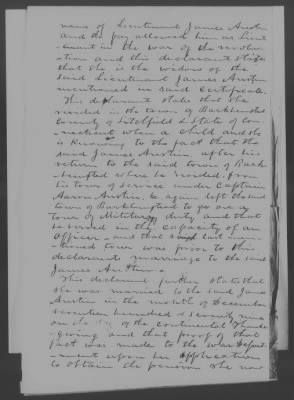 name of Lieutenant James Austin
and the pay allowed him as Lieu-
tenant in the war of the revolu-
tion and this declarant states
that she is the widow of the
said Lieutenant James Austin
mentioned in said Certificate.
This declarant states that she
resided in the town of Barkhamsted
County of Litchfield & State of Con-
necticut when a child and she
is knowing to the fact that the
said James Austin, after his
return to the said town of Bark-
hamsted where he resided, from
his tour of service under Captain
Aaron Austin, he again left the said
town of Barkhamsted to go on a
tour of Military duty and that
he served in the capacity of an
Officer - and that said last men-
tioned tour was prior to this
declarants marriage to the said
James Austin.
This declarant further states that
she was married to the said James
Austin in the month of December
seventeen hundred & seventy nine
on the day of the continental Thanks-
giving and that proof of that
fact was made to the War Depart-
-ment upon her application
to obtain the pension she now